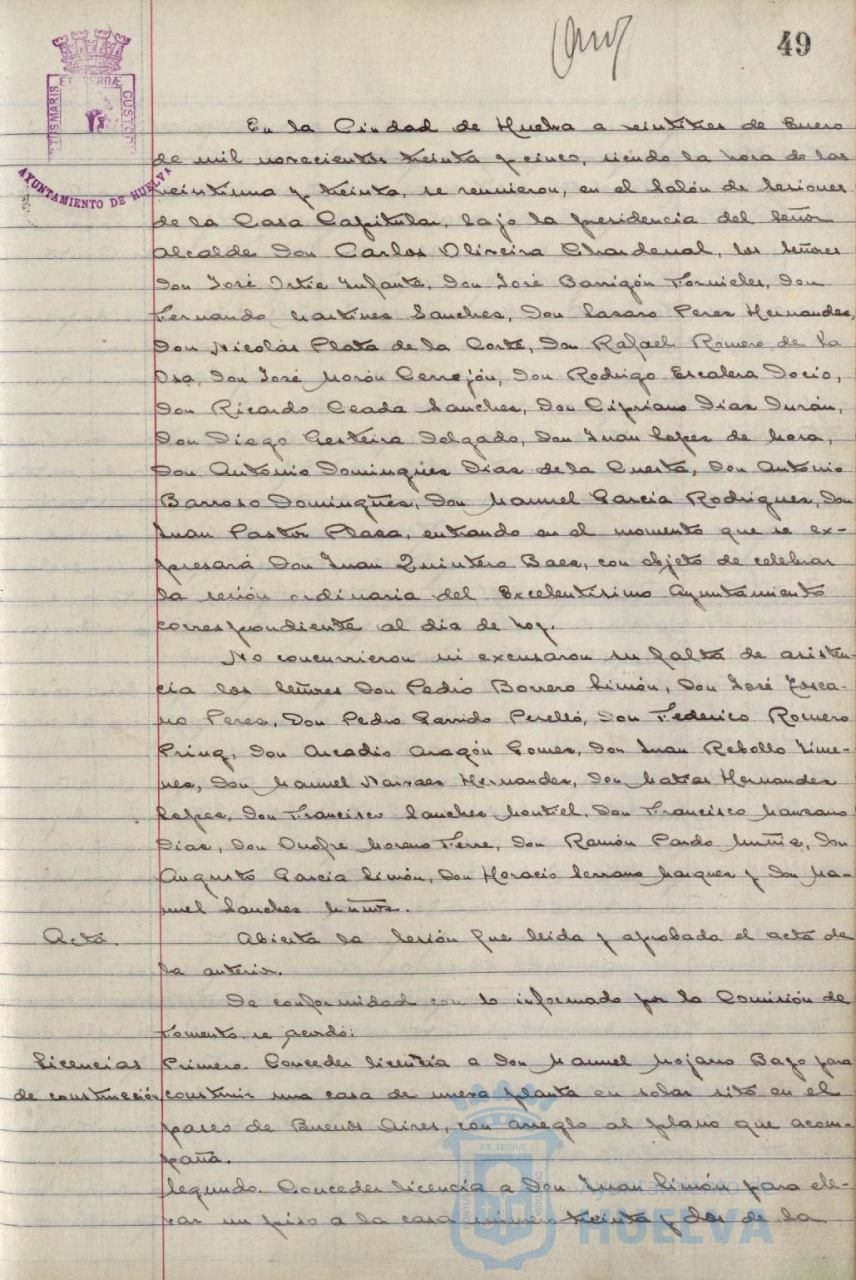 49
ET TERRÆ
PORTUS MARIS
CUSTODIA
AYUNTAMIENTO DE HUELVA
En la Ciudad de Huelva a veintitres de Enero
de mil novecientos treinta y cinco, siendo la hora de las
veintiuna y treinta, se reunieron, en el Salón de Sesiones
de la Casa Capitular, bajo la presidencia del Señor
Alcalde Don Carlos Oliveira Chardenal, los Señores
Don José Ortiz Infante, Don José Barrigón Fornieles, Don
Fernando Martines Sanches, Don Lasaro Peres Hernandes,
Don Nicolás Plata de la Corte, Don Rafael Romero de la
Osa, Don José Morón Cerrejón, Don Rodrigo Escalera Docio,
Don Ricardo Ceada Sanches, Don Cipriano Dias Durán,
Don Diego Gesteira Delgado, Don Juan Lopes de Mora,
Don Antonio Domingües Dias de la Cuesta, Don Antonio
Barroso Domingües, Don Manuel Garcia Rodrigues, Don
Juan Pastor Plasa, entrando en el momento que se ex-
presará Don Juan Quintero Baes, con objeto de celebrar
la sesión ordinaria del Excelentísimo Ayuntamiento
correspondiente al día de hoy.
No concurrieron ni excusaron su falta de asisten-
cia los Señores Don Pedro Borrero Limón, Don José
Peres, Don Pedro Garrido Perelló, Don Federico Romero
Don Arcadio Aragón Gomes, Don Juan Rebollo Jime-
nes, Don Manuel Narvaes Hernandes, Don Matias Hernandes
Lopes, Don Francisco Sanches Montiel, Don Francisco Manzano
Dias, Don Onofre Moreno Ferre, Don Ramón Pardo Don
Augusto Garcia Limón, Don Horacio Serrano Marques y Don Ma-
nuel Sanches Muñoz.
Acta. Abierta la Sesión fue leida y aprobada el acta de
la anterior.
De conformidad con lo informado por la Comisión de
Fomento, se acordó:
Licencias Primero. Conceder licencia a Don Manuel Mojarro Bago para
de construcción construir una casa de nueva planta en solar sito en el
paseo de Buenos Aires, con arreglo al plano que acom-
paña.
Segundo. Conceder licencia a Don Juan Limón para ele-
var un piso a la casa número treinta y dos de la
Ayuntamiento
HUELVA